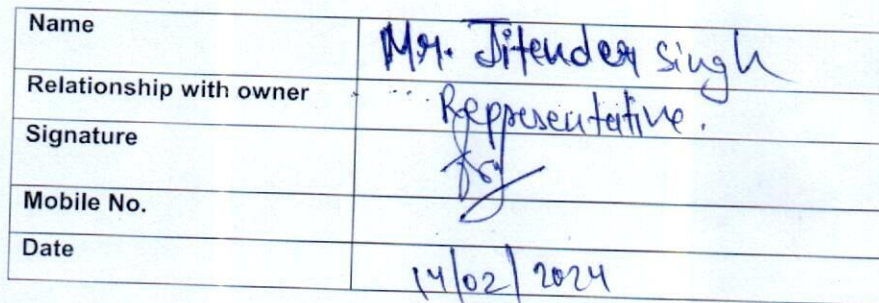 Name Mr. Jitender Singh
Relationship with owner Representative.
Signature
Mobile No.
Date 14/02/2024